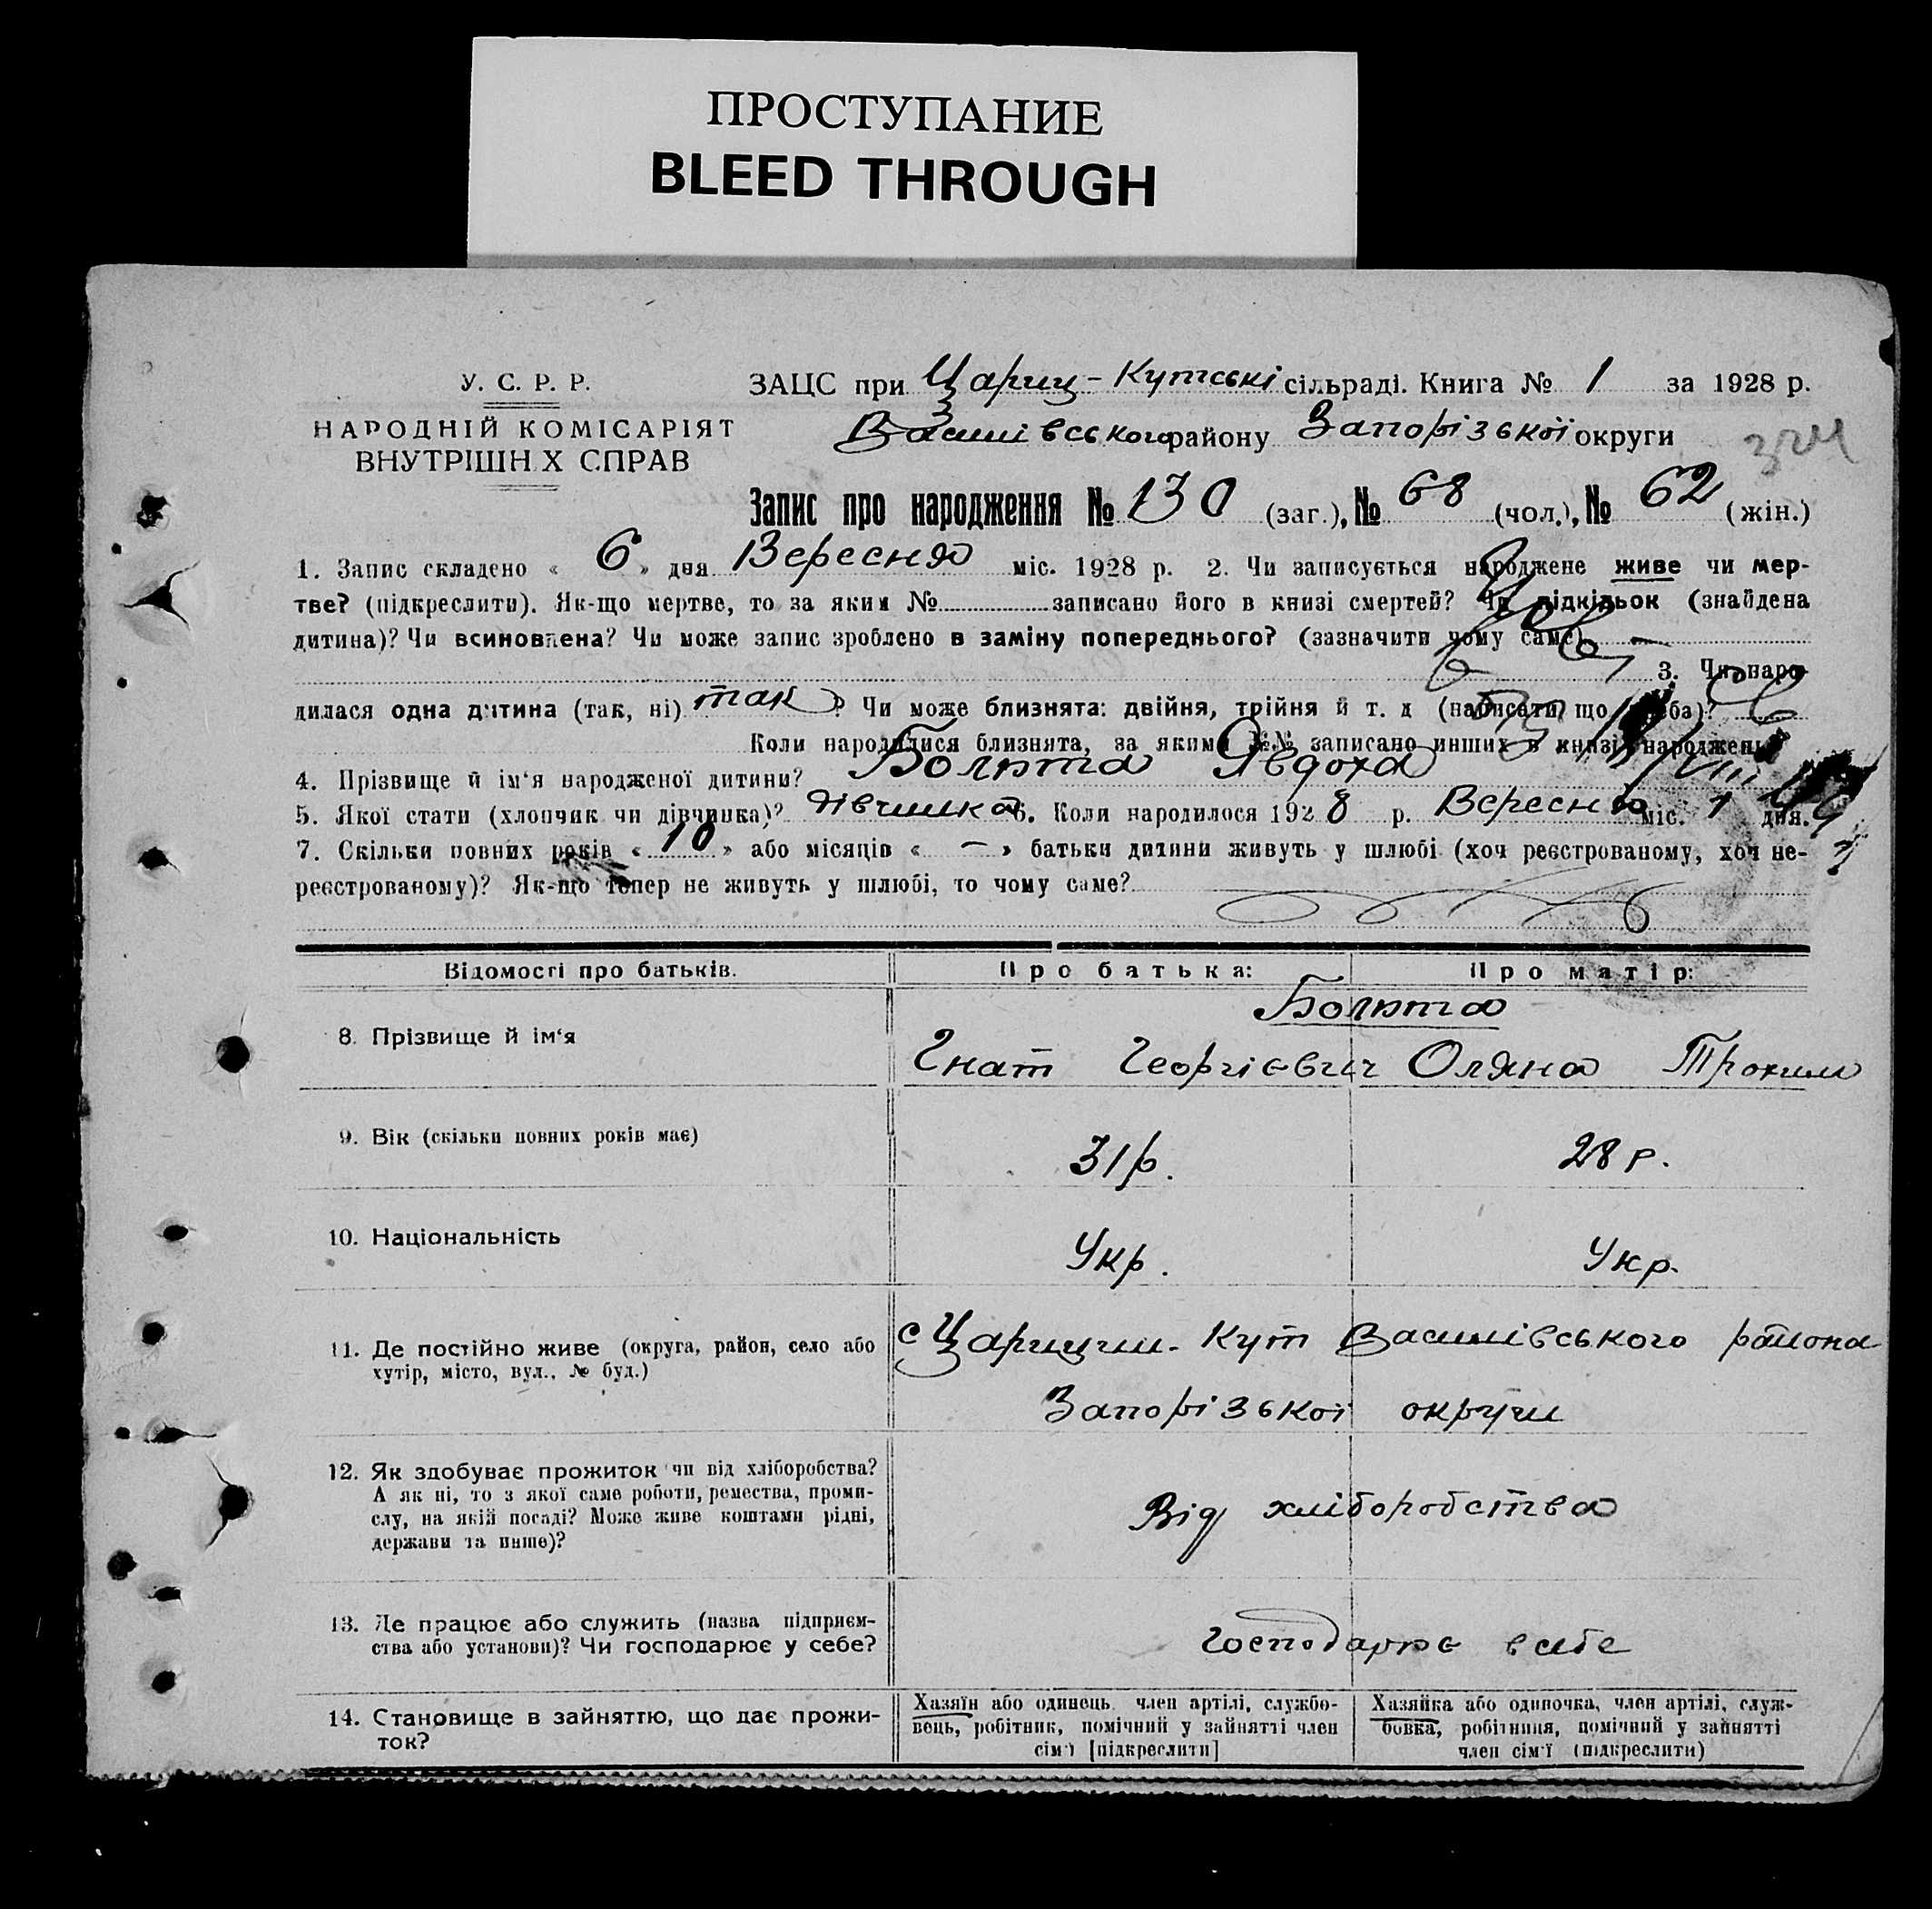 ПРОСТУПАНИЕ
BLEED THROUGH
У. С. Р. Р.
НАРОДНІЙ КОМІСАРІЯТ
ВНУТРІШН Х СПРАВ
ЗАЦС при Цариц-Кутській сільраді. Книга № 1 за 1928 р.
Василівського району Запорізької округи
Запис про народження № 130 (заг.), № 68 (чол.), № 62 (жін.)
1. Запис складено « 6 » дня Вересня міс. 1928 р. 2. Чи записується народжене живе чи мер-
тве? (підкреслити). Як-що мертве, то за яким № записано його в книзі смертей? Чи підкідьок (знайдена
дитина)? Чи всиновлена? Чи може запис зроблено в заміну попереднього? (зазначити чому саме) —
3. Чи наро-
дилася одна дитина (так, ні) так ? Чи може близнята: двійня, трійня й т. д (написати, що треба)?
Коли народилися близнята, за якими №№ записано инших в книзі народжень
4. Прізвище й ім'я народженої дитини? Болюта Явдоха
5. Якої стати (хлопчик чи дівчинка)? дівчинка 6. Коли народилося 1928 р. Вересня міс. 1 дня.
7. Скільки повних років « 10 » або місяців « — » батьки дитини живуть у шлюбі (хоч реєстрованому, хоч не-
реєстрованому)? Як-що тепер не живуть у шлюбі, то чому саме?
Відомості про батьків. Про батька: Про матір:
Болюта
8. Прізвище й ім'я Гнат Георгієвич Оляна Трохим
9. Вік (скільки повних років має) 31 р. 28 р.
10. Національність Укр. Укр.
11. Де постійно живе (округа, район, село або
хутір, місто, вул., № буд.)
с Царицин-Кут Василівського района
Запорізької округи
12. Як здобуває прожиток чи від хліборобства?
А як ні, то з якої саме роботи, ремества, проми-
слу, на якій посаді? Може живе коштами рідні,
держави та инше)?
Від хліборобства
13. Де працює або служить (назва підприєм-
ства або установи)? Чи господарює у себе?
Господарює в себе
14. Становище в зайняттю, що дає прожи-
ток?
Хазяїн або одинець, член артілі, службо-
вець, робітник, помічний у зайнятті член
сім'ї [підкреслити]
Хазяйка або одиночка, член артілі, служ-
бовка, робітниця, помічний у зайнятті
член сім'ї (підкреслити)